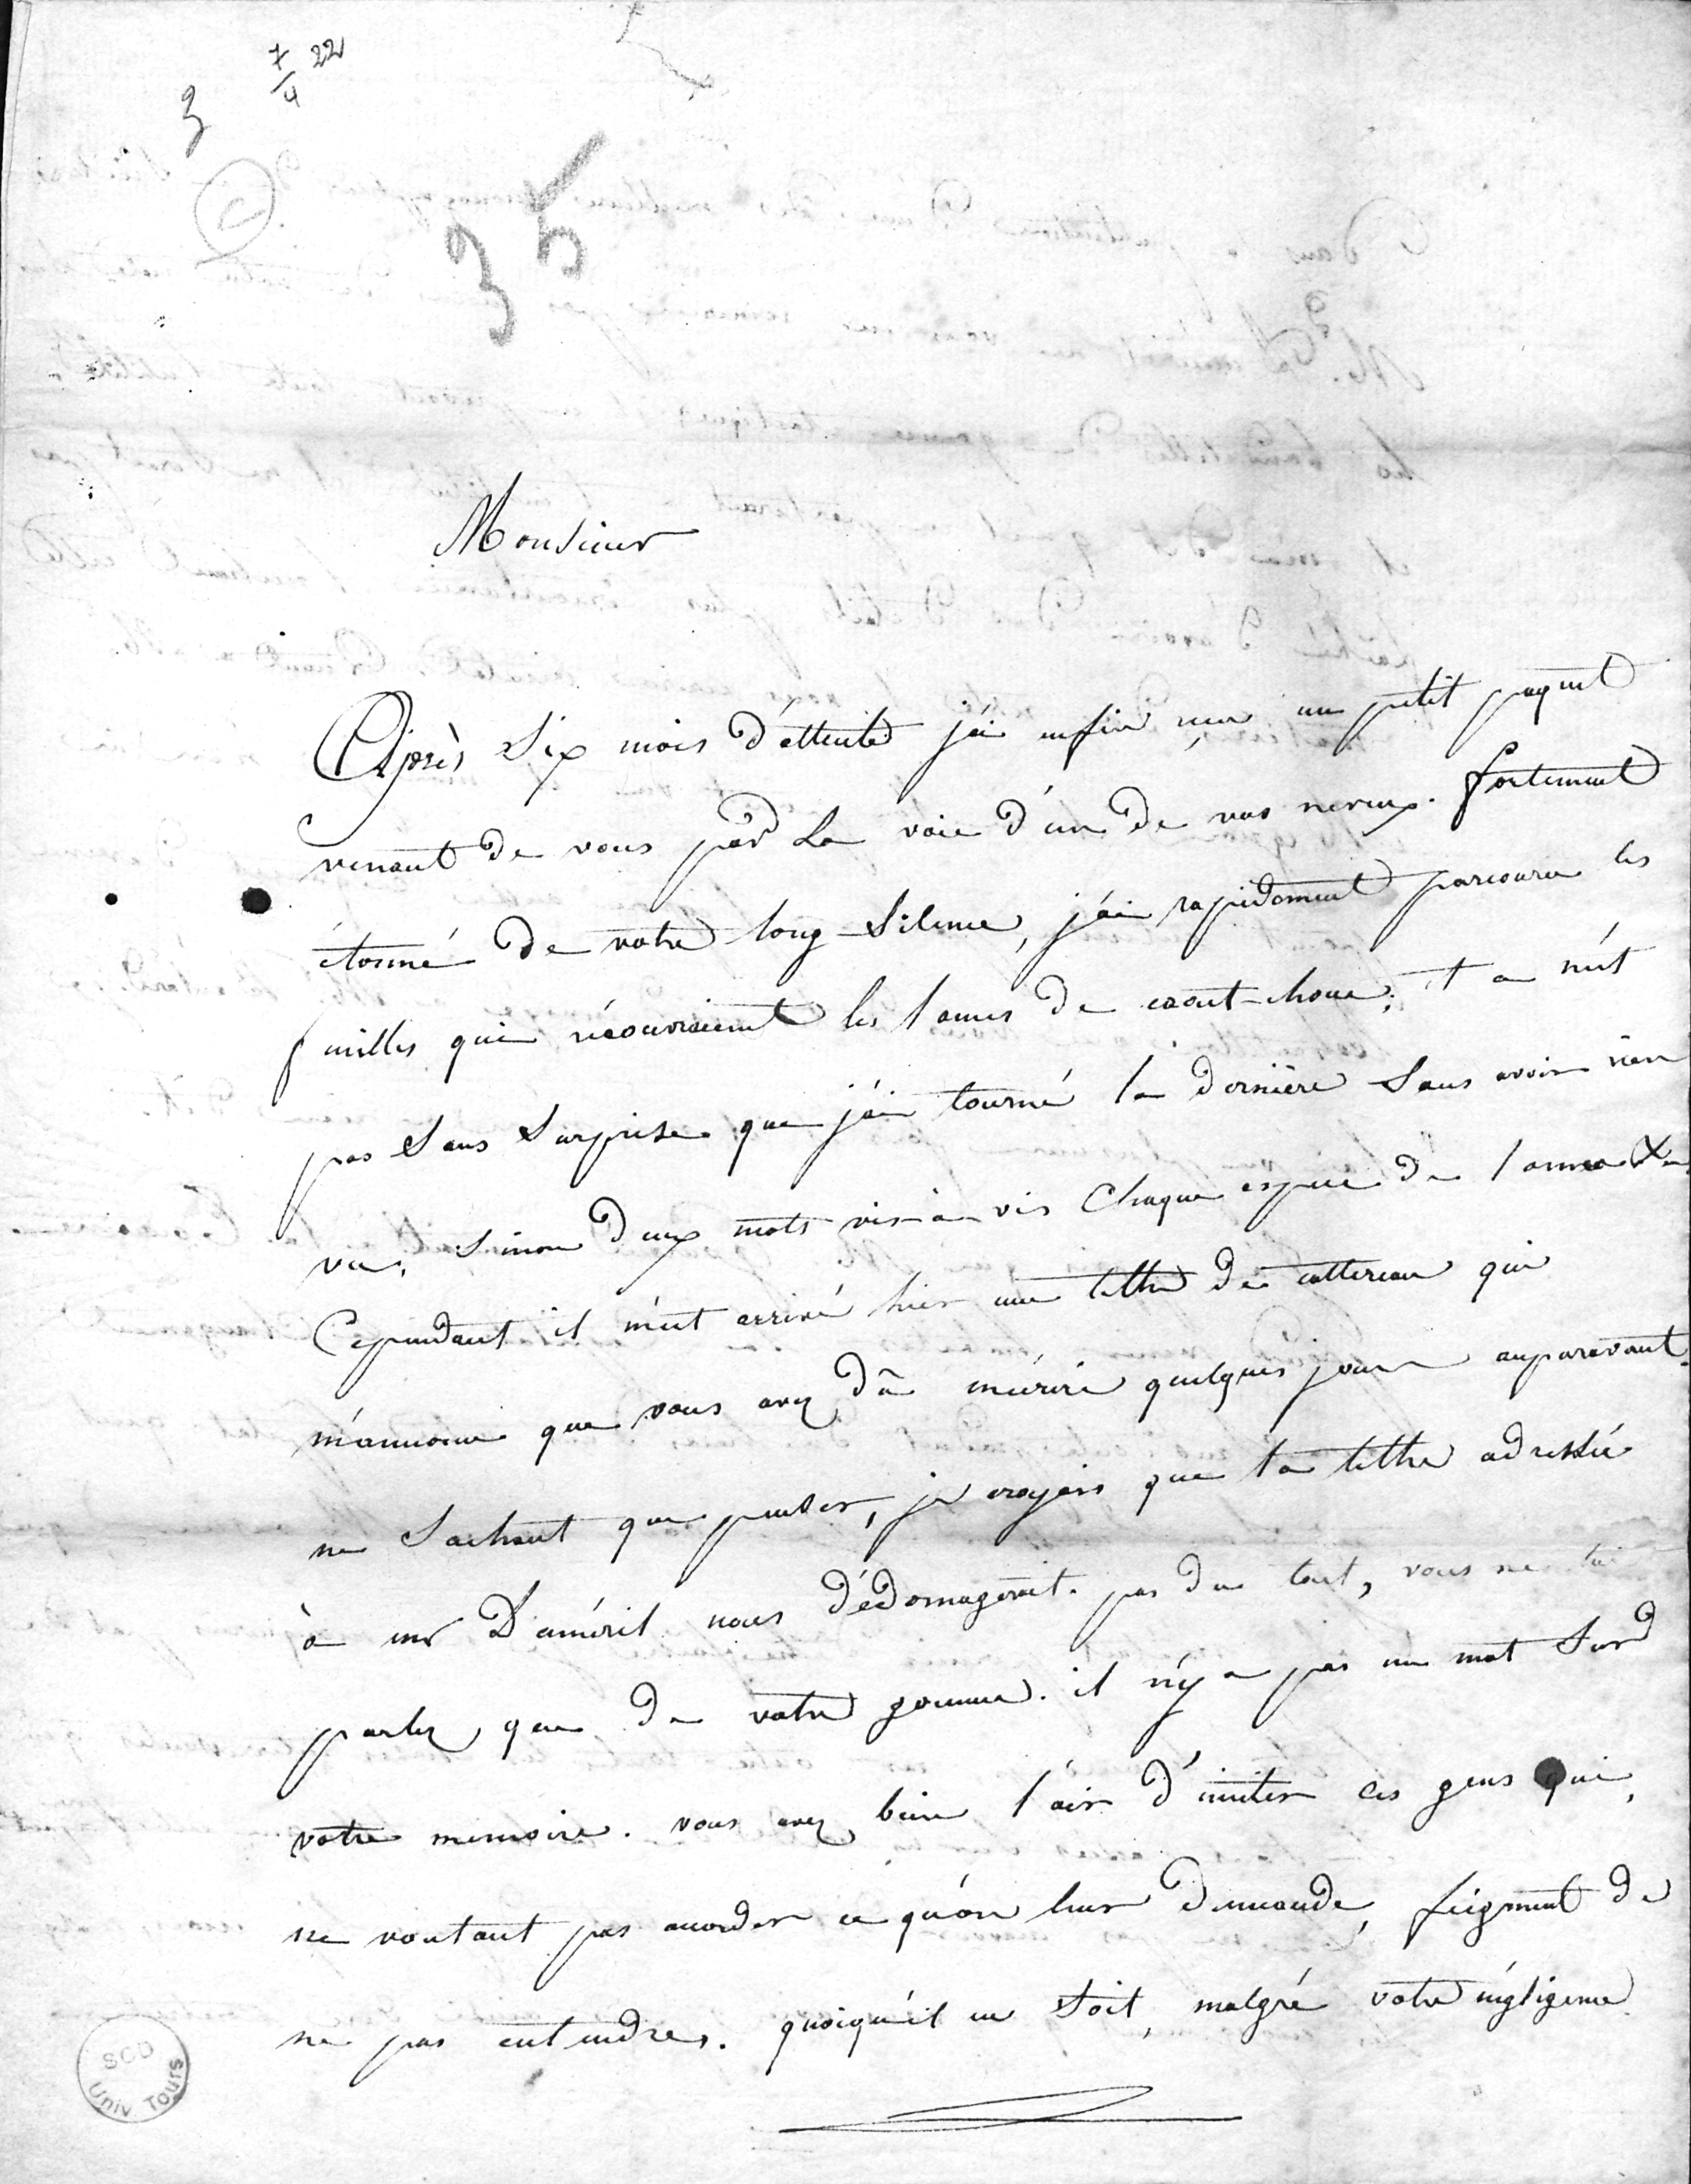 7/4 22
3
35
Monsieur
Après Six mois d'attente j'ai enfin reçu un petit paquet
venant de vous par La voie d'un de vos neveux. fortement
étonné de votre long Silence, j'ai rapidement parcouru les
feuilles qui recouvraient les lames de caout-chouc; et ce n'est
pas Sans Surprise que j'ai tourné la dernière Sans avoir rien
vu, Sinon deux mots vis-à-vis Chaque espèce de
Cependant il m'est arrivé hier une lettre de cattereau qui
m'annonce que vous avez dû m'écrire quelques jours auparavant.
ne Sachant que penser, je croyais que la lettre adressée
à mr D'améril nous dédomagerait. pas du tout, vous ne lui
parlez que de votre gomme. il n'y a pas un mot Sur
votre memoire. vous avez bien l'air d'imiter ces gens qui,
ne voulant pas accorder ce qu'on leur demande, feignent de
ne pas entendre. quoiqu'il en Soit, malgré votre négligence
SCD
Univ. Tours